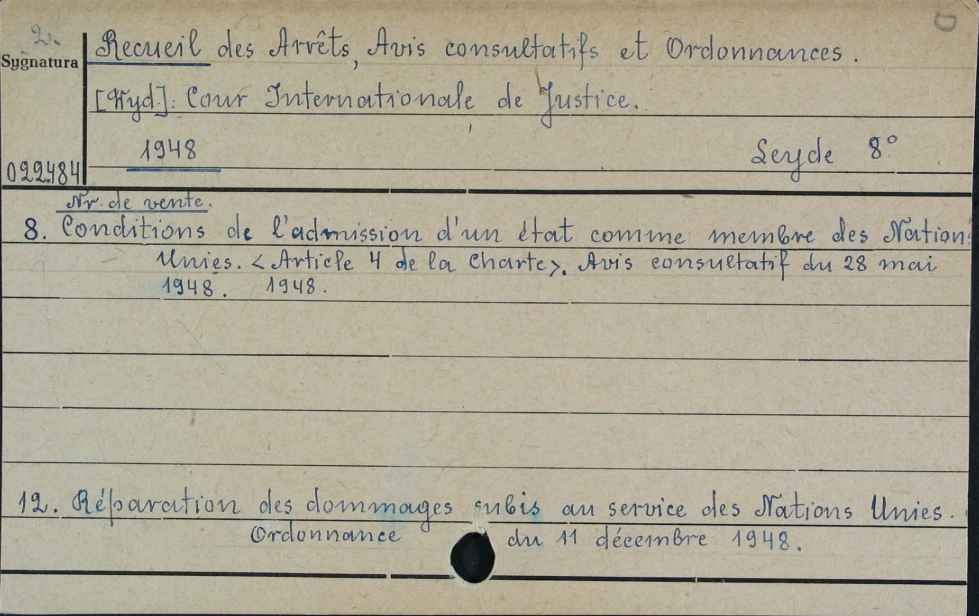 2.
Sygnatura
Recueil des Arrêts, Avis consultatifs et Ordonnances.
[Wyd]: Cour Internationale de Justice.
1948
Leyde 8°
022484
Nr. de vente.
8. Conditions de l'admission d'un état comme membre des Nation
Unies. <Article 4 de la Charte>. Avis consultatif du 28 mai
1948. 1948.
12. Réparation des dommages subis au service des Nations Unies.
Ordonnance du 11 décembre 1948.